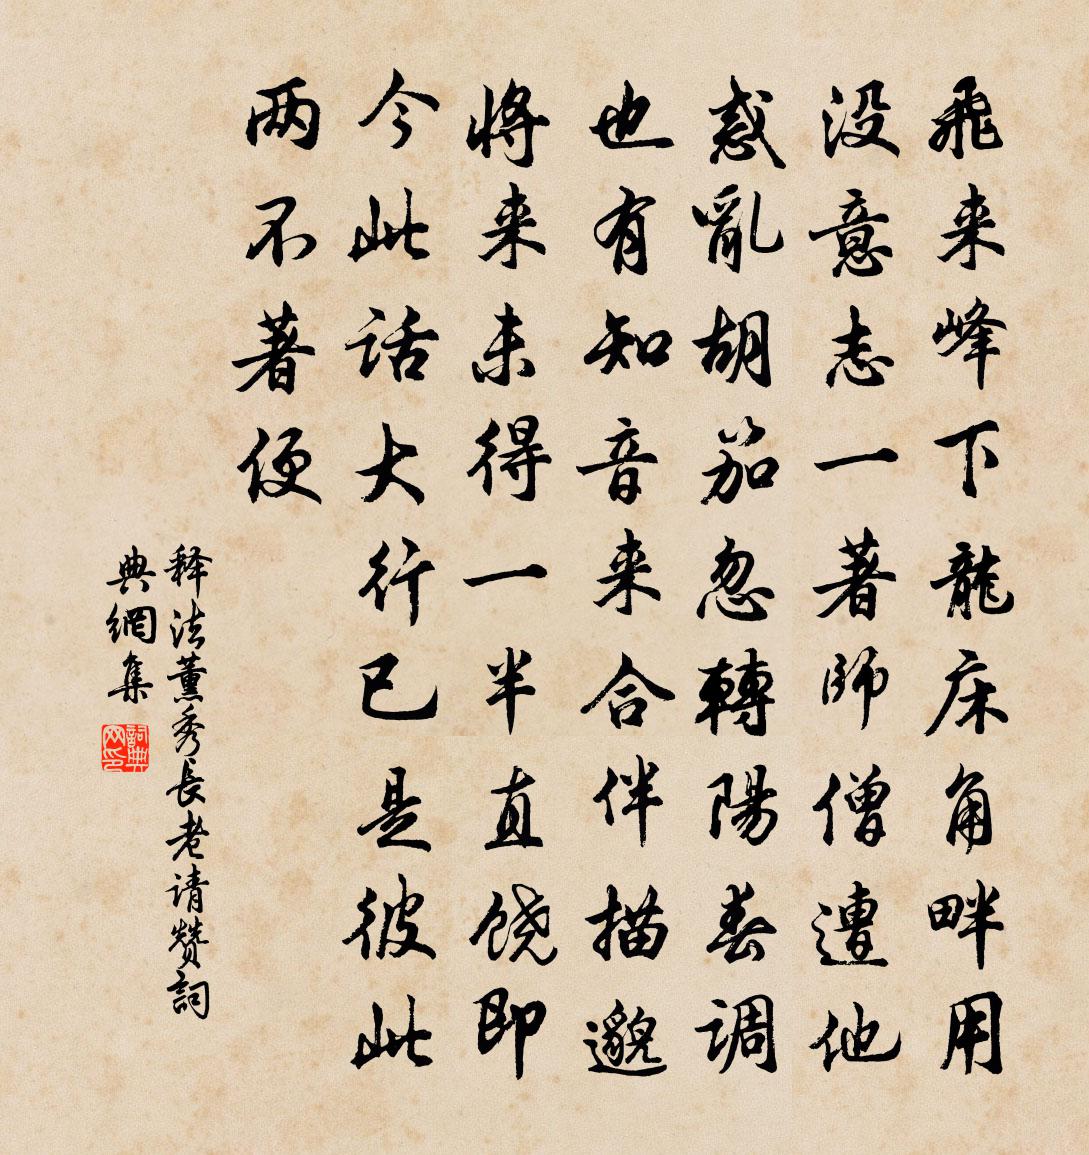 飛来峰下龍床角畔用
没意志一著師僧遭他
惑亂胡笳忽轉陽春调
也有知音来合伴描邈
将来未得一半直饶即
今此话大行已是彼此
两不著便
释法薰秀長老请赞詞
典網集
詞典网印